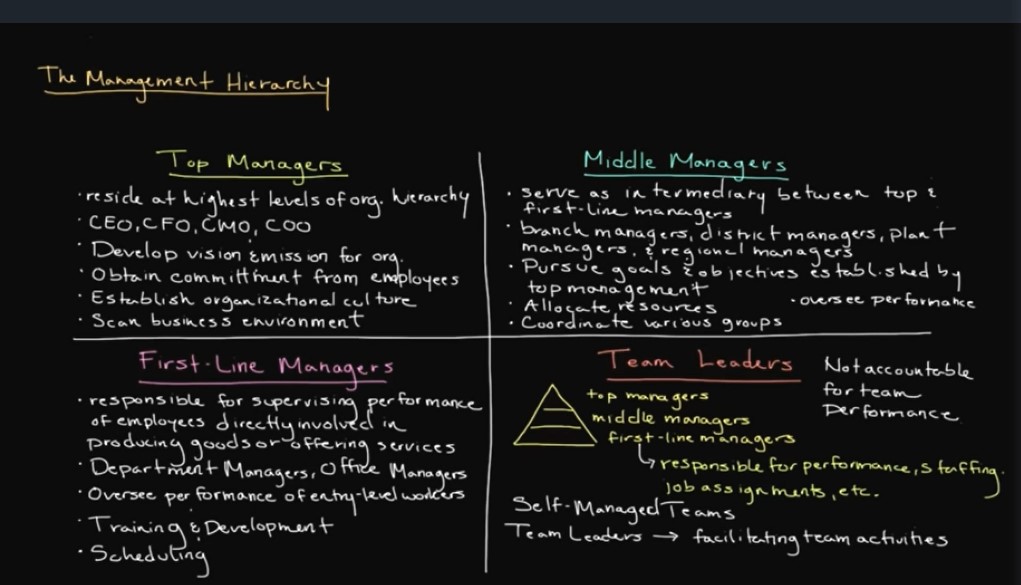 The Management Hierarchy
Top Managers
· reside at highest levels of org. hierarchy
· CEO, CFO, CMO, COO
· Develop vision & mission for org.
· Obtain committment from employees
· Establish organizational culture
· Scan business environment
Middle Managers
· serve as intermediary between top &
first-line managers
· branch managers, district managers, plant
managers, & regional managers
· Pursue goals & objectives established by
top management
· Allocate resources
· oversee performance
· Coordinate various groups
First-Line Managers
· responsible for supervising performance
of employees directly involved in
producing goods or offering services
· Department Managers, Office Managers
· Oversee performance of entry-level workers
· Training & Development
· Scheduling
Team Leaders
Not accountable
for team
performance
top managers
middle managers
first-line managers
↳ responsible for performance, staffing,
job assignments, etc.
Self-Managed Teams
Team Leaders → facilitating team activities